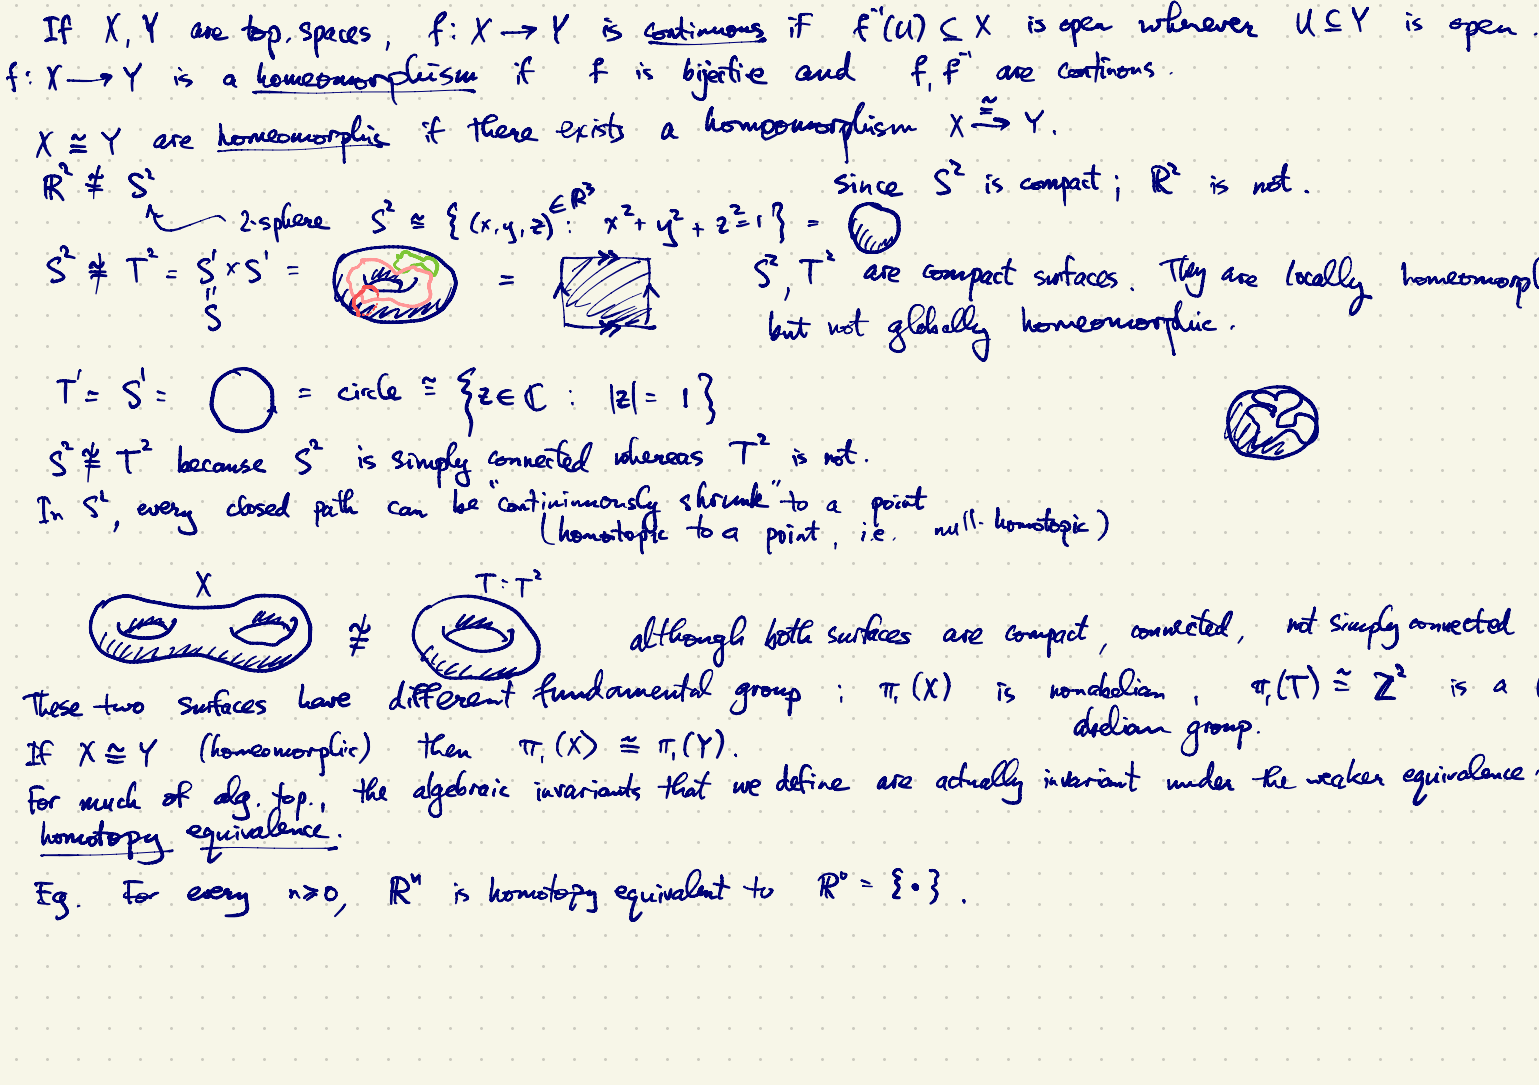 If X, Y are top. spaces, f: X → Y is continuous if f⁻¹(U) ⊆ X is open whenever U ⊆ Y is open.
f: X → Y is a homeomorphism if f is bijective and f, f⁻¹ are continous.
X ≅ Y are homeomorphic if there exists a homeomorphism X ≅→ Y.
ℝ² ≇ S² since S² is compact; ℝ² is not.
2-sphere S² ≅ {(x,y,z) ∈ ℝ³ : x² + y² + z² = 1} =
S² ≇ T² = S¹ × S¹ = = S², T² are compact surfaces. They are locally homeomorp
"
S
but not globally homeomorphic.
T¹ = S¹ = = circle ≅ {z ∈ ℂ : |z| = 1}
S² ≇ T² because S² is simply connected whereas T² is not.
In S², every closed path can be "continuously shrunk" to a point
(homotopic to a point, i.e. null-homotopic)
X T = T²
≇ although both surfaces are compact, connected, not simply connected
These two surfaces have different fundamental group; π₁(X) is nonabelian, π₁(T) ≅ ℤ² is a
abelian group.
If X ≅ Y (homeomorphic) then π₁(X) ≅ π₁(Y).
For much of alg. top., the algebraic invariants that we define are actually invariant under the weaker equivalence
homotopy equivalence.
Eg. For every n ≥ 0, ℝⁿ is homotopy equivalent to ℝ⁰ = {•}.